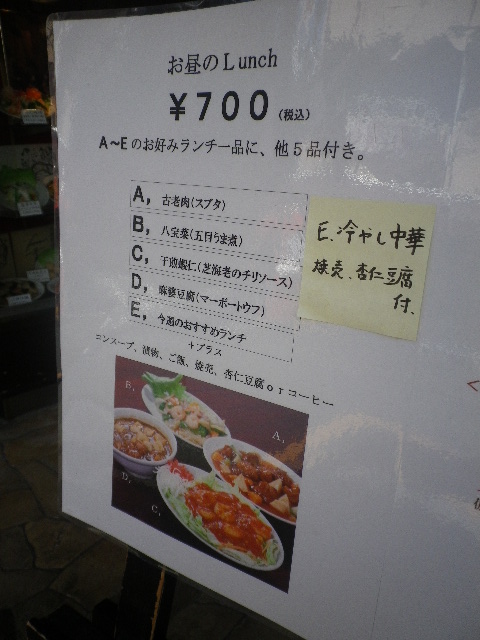 お昼のLunch
￥700(税込)
A～Eのお好みランチ一品に、他5品付き。
A, 古老肉(スブタ)
B, 八宝菜(五目うま煮)
C, 干煎蝦仁(芝海老のチリソース)
D, 麻婆豆腐(マーボートウフ)
E, 今週のおすすめランチ
+プラス
コンスープ、漬物、ご飯、焼売、杏仁豆腐orコーヒー
E.冷やし中華
焼売、杏仁豆腐
付.
B,
A,
D,
C,